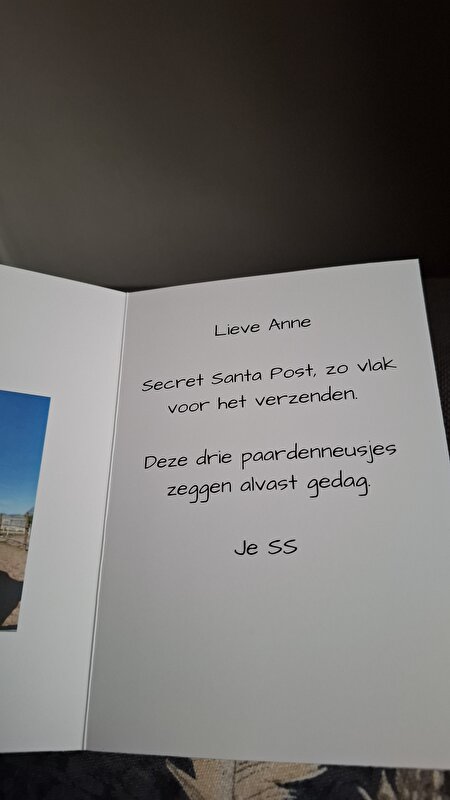 Lieve Anne
Secret Santa Post, zo vlak
voor het verzenden.
Deze drie paardenneusjes
zeggen alvast gedag.
Je SS